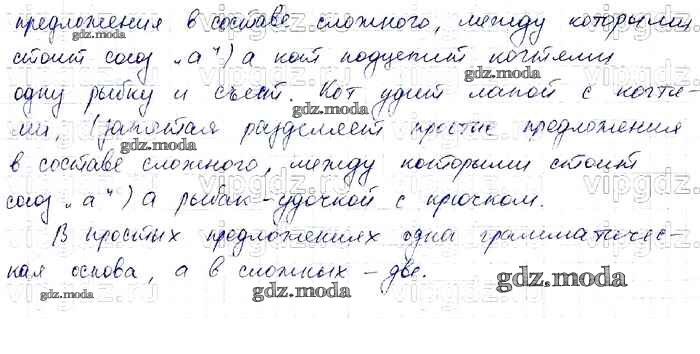 предложения в составе сложного, между которыми
стоит союз „а") а кот подцепит когтями
одну рыбку и съест. Кот удит лапой с когтя-
ми, (запятая разделяет простые предложения
в составе сложного, между которыми стоит
союз „а") а рыбак - удочкой с крючком.
В простых предложениях одна грамматичес-
кая основа, а в сложных - две.
gdz.moda
vipgdz.ru